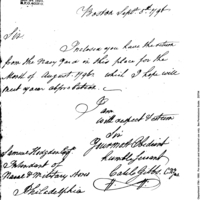 Boston Sept. 5th 1798
Sir
Inclosed you have the return
from the Navy Yard in this place for the
Month of August 1798 which I hope will
meet your approbation.
I am
with respect & esteem
Sir
Your most Obedient
Humble Servant
Caleb Gibbs
Samuel Hodgdon Esqr
Intendant of
Naval & Military Stores
Philadelphia